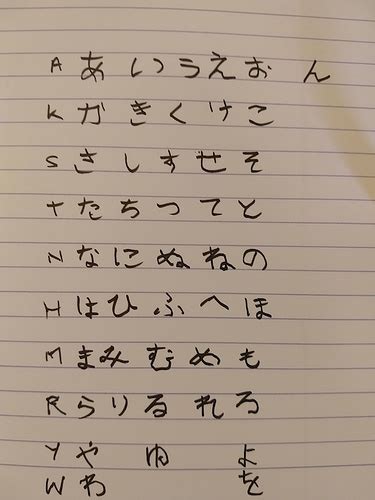 A あ い う え お ん
K が き く け こ
S き し す せ そ
T た ち つ て と
N な に ぬ ね の
H は ひ ふ へ ほ
M ま み む め も
R ら り る れ ろ
Y や ゆ よ
W わ を